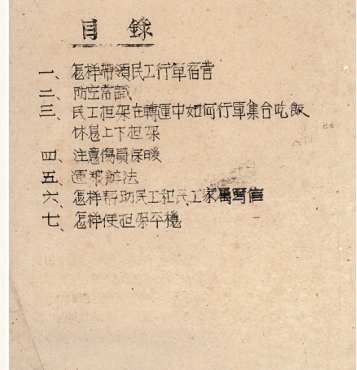 目錄
一、怎样帶領民工行軍宿营
二、防空常識
三、民工担架在轉運中如何行軍集合吃飯
休息上下担架
四、注意傷員保暖
五、通報办法
六、怎样帮助民工和民工家屬寫信
七、怎样使担架平穩